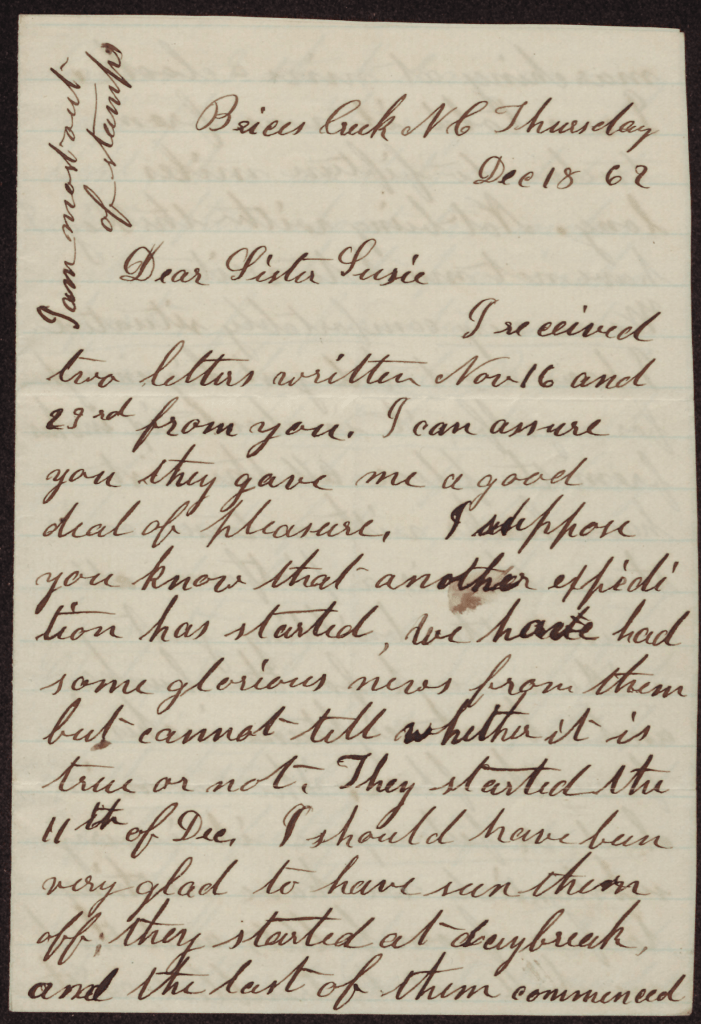 I am most out
of stamps
Brices Creek N C Thursday
Dec 18 62
Dear Sister Susie
I received
two letters written Nov 16 and
23rd from you. I can assure
you they gave me a good
deal of pleasure. I suppose
you know that another expedi
tion has started, we have had
some glorious news from them
but cannot tell whether it is
true or not. They started the
11th of Dec. I should have been
very glad to have seen them
off; they started at daybreak,
and the last of them commenced